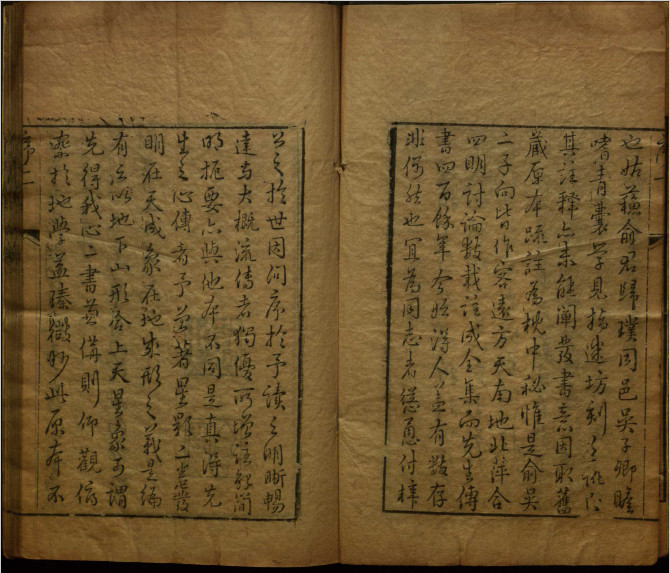 也姑蘇俞君歸璞同邑吳子卿瞻
嗜青囊學見指迷坊刻
其註釋亦未能闡發書意因取舊
藏原本疏註為枕中秘惟是俞吳
二子向皆作客遠方天南地北萍合
四明討論數載註成全集而先生傳
書四百餘年今始得人蓋有數存
非偶然也宜為同志者慫恿付梓
公之於世因問序於予讀之明晰暢
達與大概流傳者獨優所增註能簡
明扼要亦與他本不同是真得先
生之心傳者予嘗著星顯之老發
明在天成象在地成形之義是編
有註以地下山形合上天星象可謂
先得我心二書若備則仰觀俯
察於地學益臻微妙此原本不
序二